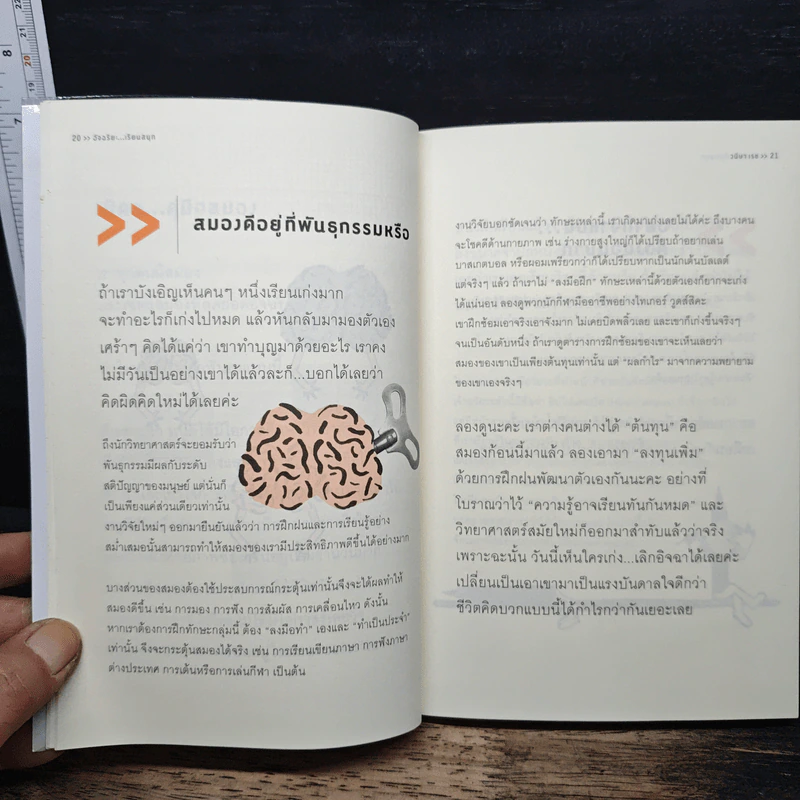 8
7
20
19
20 >> อัจฉริยะ...เรียนสนุก
สมองดีอยู่ที่พันธุกรรมหรือ
ถ้าเราบังเอิญเห็นคนๆ หนึ่งเรียนเก่งมาก
จะทำอะไรก็เก่งไปหมด แล้วหันกลับมามองตัวเอง
เศร้าๆ คิดได้แค่ว่า เขาทำบุญมาด้วยอะไร เราคง
ไม่มีวันเป็นอย่างเขาได้แล้วละก็...บอกได้เลยว่า
คิดผิดคิดใหม่ได้เลยค่ะ
ถึงนักวิทยาศาสตร์จะยอมรับว่า
พันธุกรรมมีผลกับระดับ
สติปัญญาของมนุษย์ แต่นั่นก็
เป็นเพียงแค่ส่วนเดียวเท่านั้น
งานวิจัยใหม่ๆ ออกมายืนยันแล้วว่า การฝึกฝนและการเรียนรู้อย่าง
สม่ำเสมอนั้นสามารถทำให้สมองของเรามีประสิทธิภาพดีขึ้นได้อย่างมาก
บางส่วนของสมองต้องใช้ประสบการณ์กระตุ้นเท่านั้นจึงจะได้ผลทำให้
สมองดีขึ้น เช่น การมอง การฟัง การสัมผัส การเคลื่อนไหว ดังนั้น
หากเราต้องการฝึกทักษะกลุ่มนี้ ต้อง “ลงมือทำ” เองและ “ทำเป็นประจำ”
เท่านั้น จึงจะกระตุ้นสมองได้จริง เช่น การเรียนเขียนภาษา การฟังภาษา
ต่างประเทศ การเต้นหรือการเล่นกีฬา เป็นต้น
วนิษา เรซ >> 21
งานวิจัยบอกชัดเจนว่า ทักษะเหล่านี้ เราเกิดมาเก่งเลยไม่ได้ค่ะ ถึงบางคน
จะโชคดีด้านกายภาพ เช่น ร่างกายสูงใหญ่ก็ได้เปรียบถ้าอยากเล่น
บาสเกตบอล หรือผอมเพรียวกว่าก็ได้เปรียบหากเป็นนักเต้นบัลเลต์
แต่จริงๆ แล้ว ถ้าเราไม่ “ลงมือฝึก” ทักษะเหล่านี้ด้วยตัวเองก็ยากจะเก่ง
ได้แน่นอน ลองดูพวกนักกีฬามืออาชีพอย่างไทเกอร์ วูดส์สิคะ
เขาฝึกซ้อมเอาจริงเอาจังมาก ไม่เคยบิดพลิ้วเลย และเขาก็เก่งขึ้นจริงๆ
จนเป็นอันดับหนึ่ง ถ้าเราดูตารางการฝึกซ้อมของเขาจะเห็นเลยว่า
สมองของเขาเป็นเพียงต้นทุนเท่านั้น แต่ “ผลกำไร” มาจากความพยายาม
ของเขาเองจริงๆ
ลองดูนะคะ เราต่างคนต่างได้ “ต้นทุน” คือ
สมองก้อนนี้มาแล้ว ลองเอามา “ลงทุนเพิ่ม”
ด้วยการฝึกฝนพัฒนาตัวเองกันนะคะ อย่างที่
โบราณว่าไว้ “ความรู้อาจเรียนทันกันหมด” และ
วิทยาศาสตร์สมัยใหม่ก็ออกมาสำทับแล้วว่าจริง
เพราะฉะนั้น วันนี้เห็นใครเก่ง...เลิกอิจฉาได้เลยค่ะ
เปลี่ยนเป็นเอาเขามาเป็นแรงบันดาลใจดีกว่า
ชีวิตคิดบวกแบบนี้ได้กำไรกว่ากันเยอะเลย